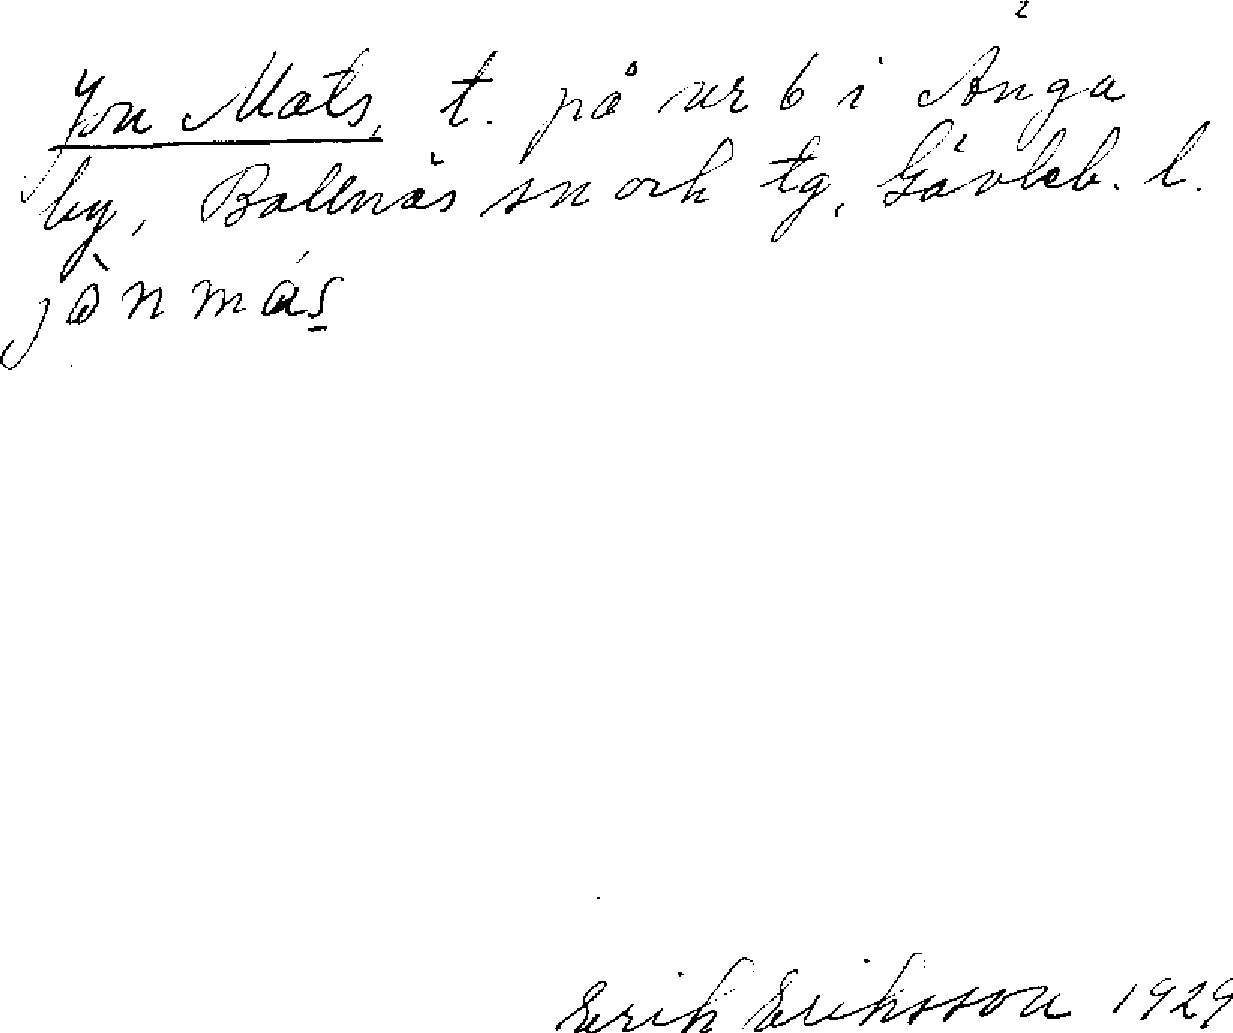 Jon Mats, t. på nr 6 i Änga
by, Bollnäs sn och tg, Gävleb. l.
jònmás
Erik Eriksson 1929